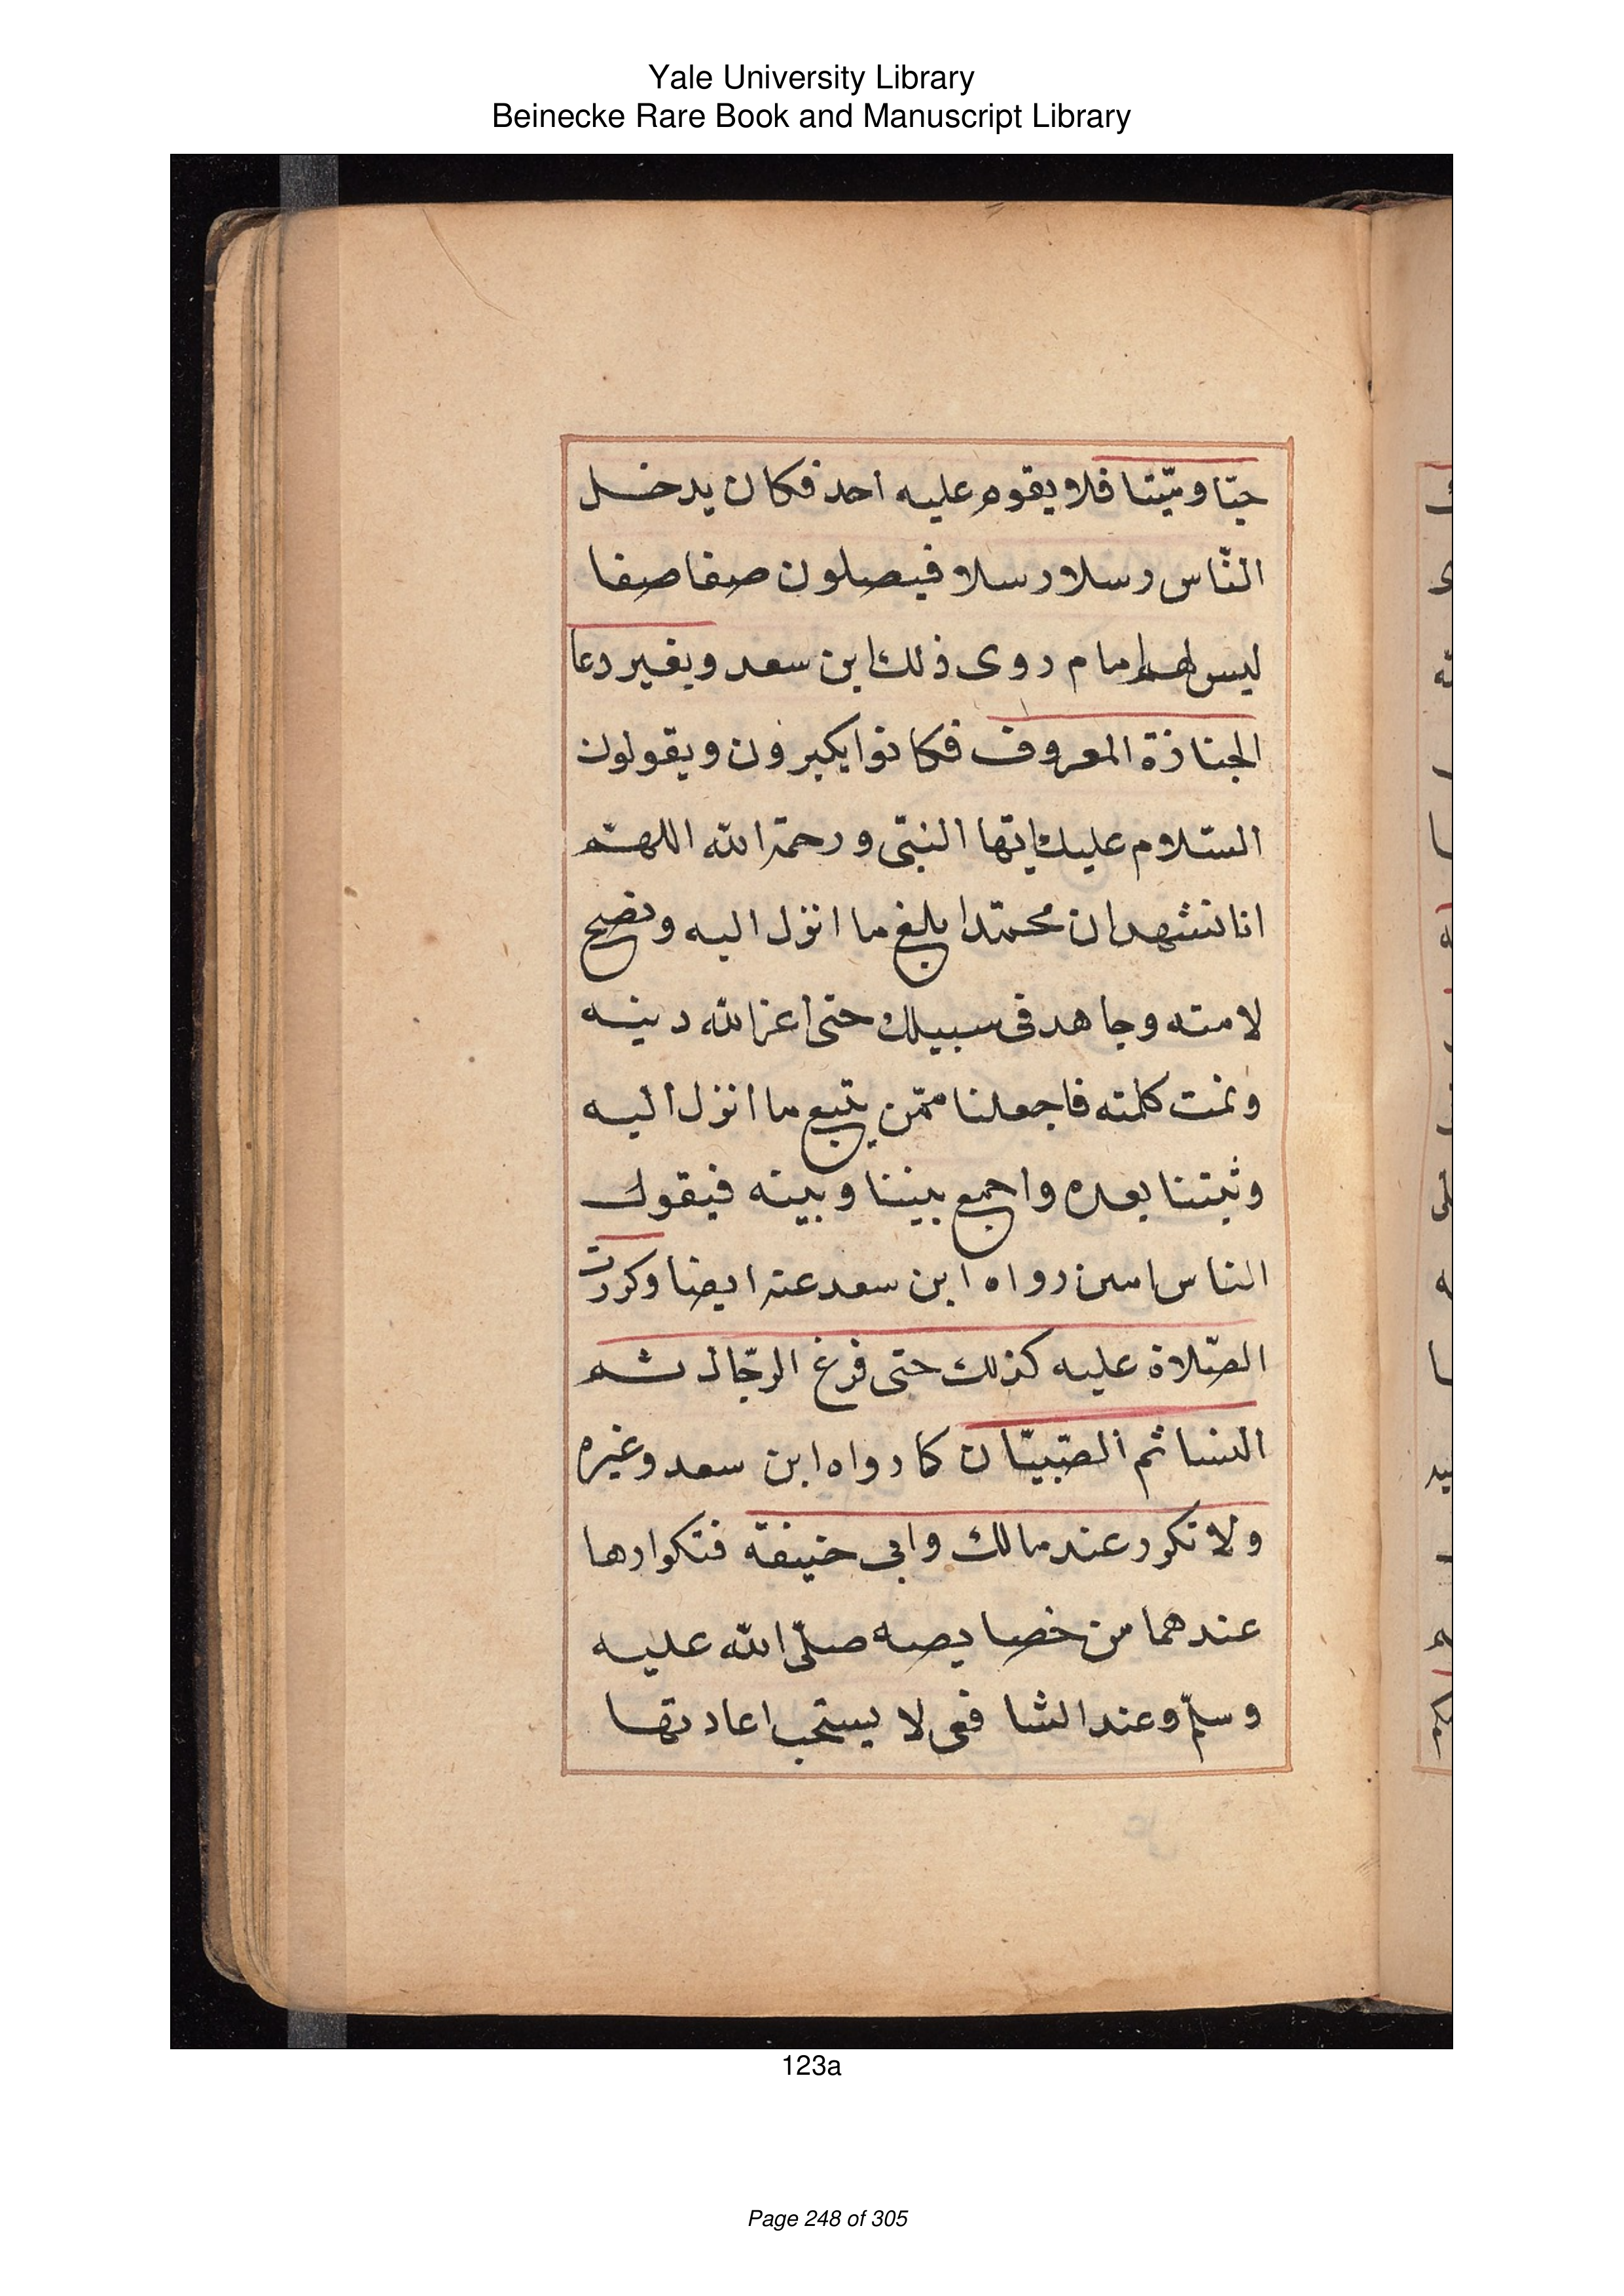 Yale University Library
Beinecke Rare Book and Manuscript Library
حيّا وميّتا فلا يقوم عليه احد فكان يدخل
النّاس رسلا رسلا فيصلون صفا صفا
ليس لهم امام روى ذلك ابن سعد وبغير دعا
الجنازة المعروف فكانوا يكبرون ويقولون
السّلام عليك ايّها النبّى ورحمة الله اللهمّ
انا نشهد ان محمّدا بلغ ما انزل اليه ونصح
لامته وجاهد فى سبيلك حتى اعز الله دينه
وتمت كلمته فاجعلنا ممّن يتّبع ما انزل اليه
وثبتنا بعده واجمع بيننا وبينه فيقول
الناس امين رواه ابن سعد عنه ايضا وكررت
الصّلاة عليه كذلك حتى فرغ الرّجال ثم
النسا ثم الصّبيّان كما رواه ابن سعد وغيره
ولا تكرر عند مالك وابى حنيفة فتكرارها
عندهما من خصايصه صلّى الله عليه
وسلّم وعند الشافعى لا يستحب اعادتها
123a
Page 248 of 305